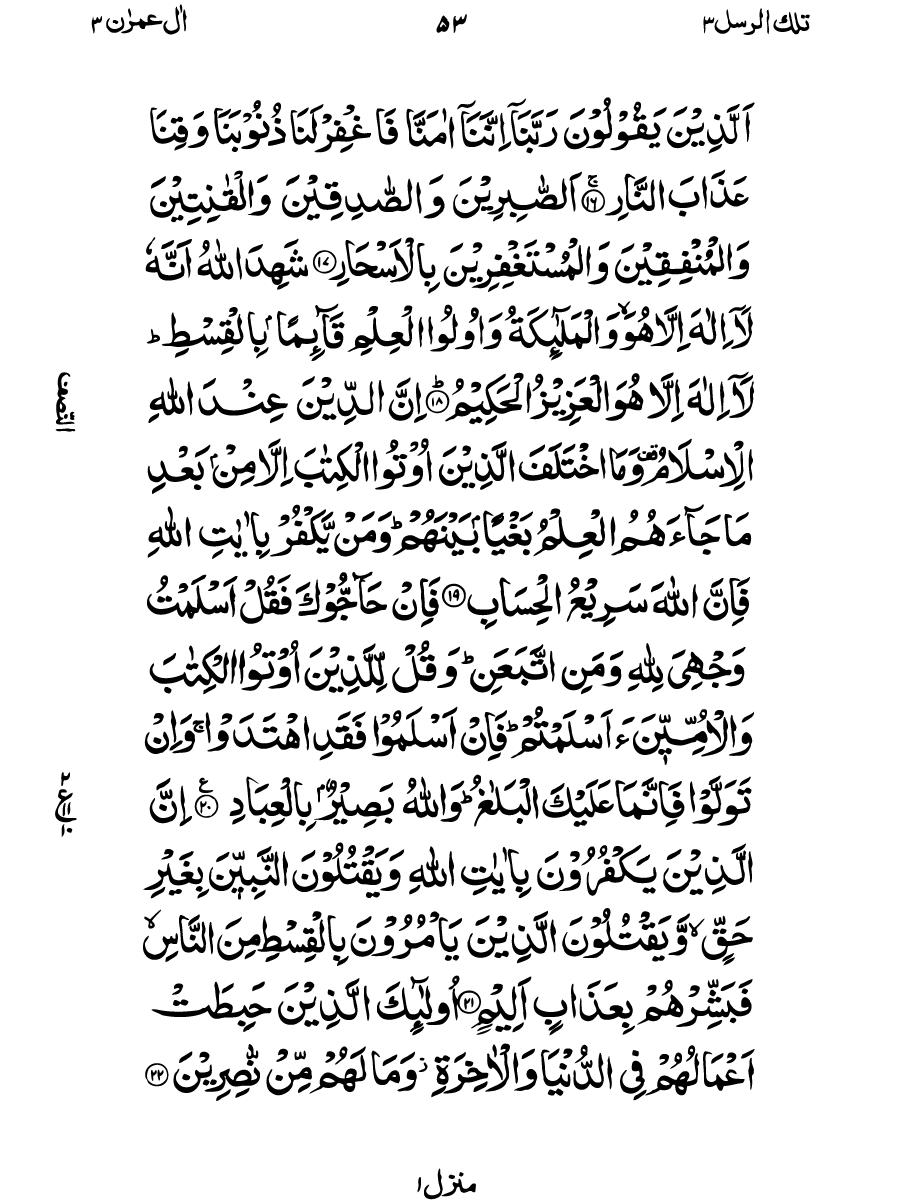 تلك الرسل ٣
٥٣
اٰل عمرٰن ٣
اَلَّذِيْنَ يَقُوْلُوْنَ رَبَّنَاۤ اِنَّنَاۤ اٰمَنَّا فَاغْفِرْ لَنَا ذُنُوْبَنَا وَ قِنَا
عَذَابَ النَّارِ ۚ‏﴿۱۶﴾ اَلصّٰبِرِيْنَ وَ الصّٰدِقِيْنَ وَالْقٰنِتِيْنَ
وَالْمُنْفِقِيْنَ وَالْمُسْتَغْفِرِيْنَ بِالْاَسْحَارِ ﴿۱۷﴾ شَهِدَ اللّٰهُ اَنَّهٗ
لَاۤ اِلٰهَ اِلَّا هُوَ ۙ وَالْمَلٰٓئِكَةُ وَاُولُوا الْعِلْمِ قَآئِمًا ۢ بِالْقِسْطِ ؕ
لَاۤ اِلٰهَ اِلَّا هُوَ الْعَزِيْزُ الْحَكِيْمُ ؕ﴿۱۸﴾ اِنَّ الدِّيْنَ عِنْدَ اللّٰهِ
الْاِسْلَامُ ۟ وَمَا اخْتَلَفَ الَّذِيْنَ اُوْتُوا الْكِتٰبَ اِلَّا مِنْۢ بَعْدِ
مَا جَآءَهُمُ الْعِلْمُ بَغْيًاۢ بَيْنَهُمْ ؕ وَمَنْ يَّكْفُرْ بِاٰيٰتِ اللّٰهِ
فَاِنَّ اللّٰهَ سَرِيْعُ الْحِسَابِ ﴿۱۹﴾ فَاِنْ حَآجُّوْكَ فَقُلْ اَسْلَمْتُ
وَجْهِىَ لِلّٰهِ وَمَنِ اتَّبَعَنِ ؕ وَقُلْ لِّلَّذِيْنَ اُوْتُوا الْكِتٰبَ
وَالْاُمِّيّٖنَ ءَاَسْلَمْتُمْ ؕ فَاِنْ اَسْلَمُوْا فَقَدِ اهْتَدَوْا ۚ وَاِنْ
تَوَلَّوْا فَاِنَّمَا عَلَيْكَ الْبَلٰغُ ؕ وَاللّٰهُ بَصِيْرٌۢ بِالْعِبَادِ ﴿۲۰﴾ اِنَّ
الَّذِيْنَ يَكْفُرُوْنَ بِاٰيٰتِ اللّٰهِ وَيَقْتُلُوْنَ النَّبِيّٖنَ بِغَيْرِ
حَقٍّ ۙ وَّيَقْتُلُوْنَ الَّذِيْنَ يَاْمُرُوْنَ بِالْقِسْطِ مِنَ النَّاسِ ۙ
فَبَشِّرْهُمْ بِعَذَابٍ اَلِيْمٍ ﴿۲۱﴾ اُولٰٓئِكَ الَّذِيْنَ حَبِطَتْ
اَعْمَالُهُمْ فِى الدُّنْيَا وَالْاٰخِرَةِ ۫ وَمَا لَهُمْ مِّنْ نّٰصِرِيْنَ ﴿۲۲﴾
النّصف
٢ ع ١١ ١٠
منزل ١